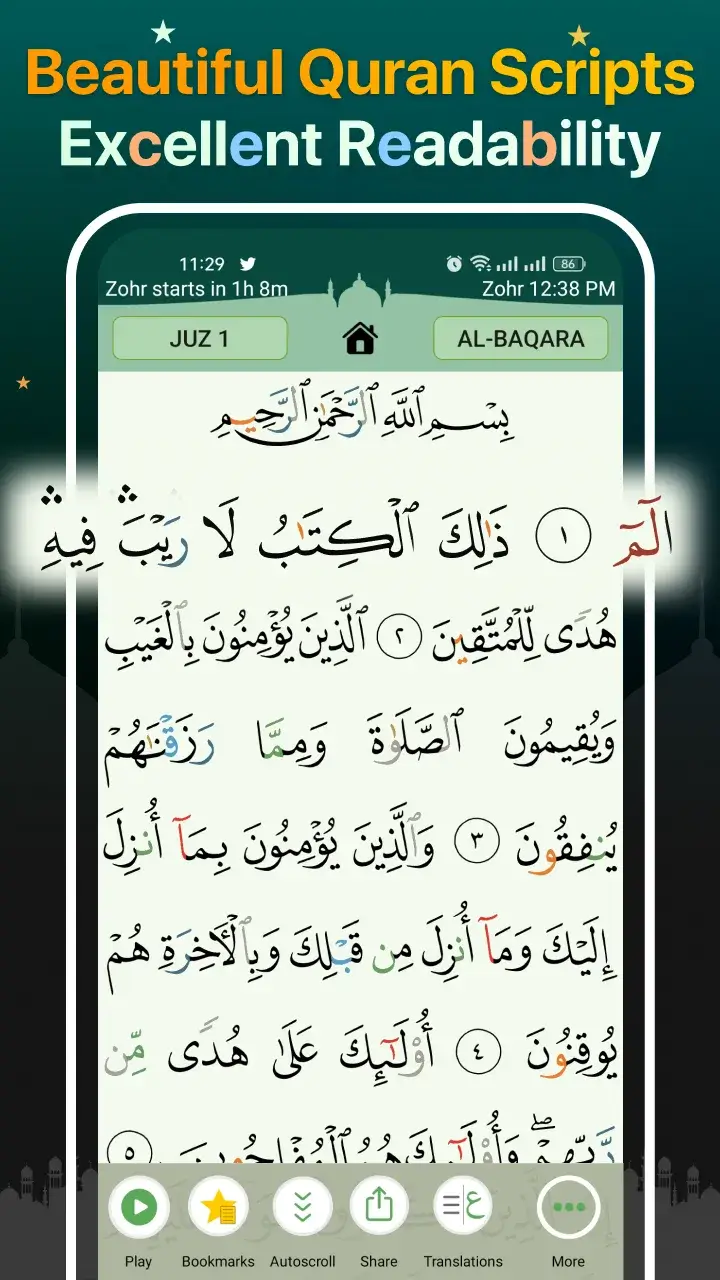 Beautiful Quran Scripts
Excellent Readability
11:29 86
Zohr starts in 1h 8m Zohr 12:38 PM
JUZ 1 AL-BAQARA
بِسْمِ ٱللَّهِ ٱلرَّحْمَٰنِ ٱلرَّحِيمِ
الٓمٓ ١ ذَٰلِكَ ٱلْكِتَٰبُ لَا رَيْبَ ۛ فِيهِ ۛ
هُدًى لِّلْمُتَّقِينَ ٢ ٱلَّذِينَ يُؤْمِنُونَ بِٱلْغَيْبِ
وَيُقِيمُونَ ٱلصَّلَوٰةَ وَمِمَّا رَزَقْنَٰهُمْ
يُنفِقُونَ ٣ وَٱلَّذِينَ يُؤْمِنُونَ بِمَآ أُنزِلَ
إِلَيْكَ وَمَآ أُنزِلَ مِن قَبْلِكَ وَبِٱلْأٓخِرَةِ هُمْ
يُوقِنُونَ ٤ أُو۟لَٰٓئِكَ عَلَىٰ هُدًى مِّن
رَّبِّهِمْ ۖ وَأُو۟لَٰٓئِكَ هُمُ ٱلْمُفْلِحُونَ ٥
Play Bookmarks Autoscroll Share Translations More